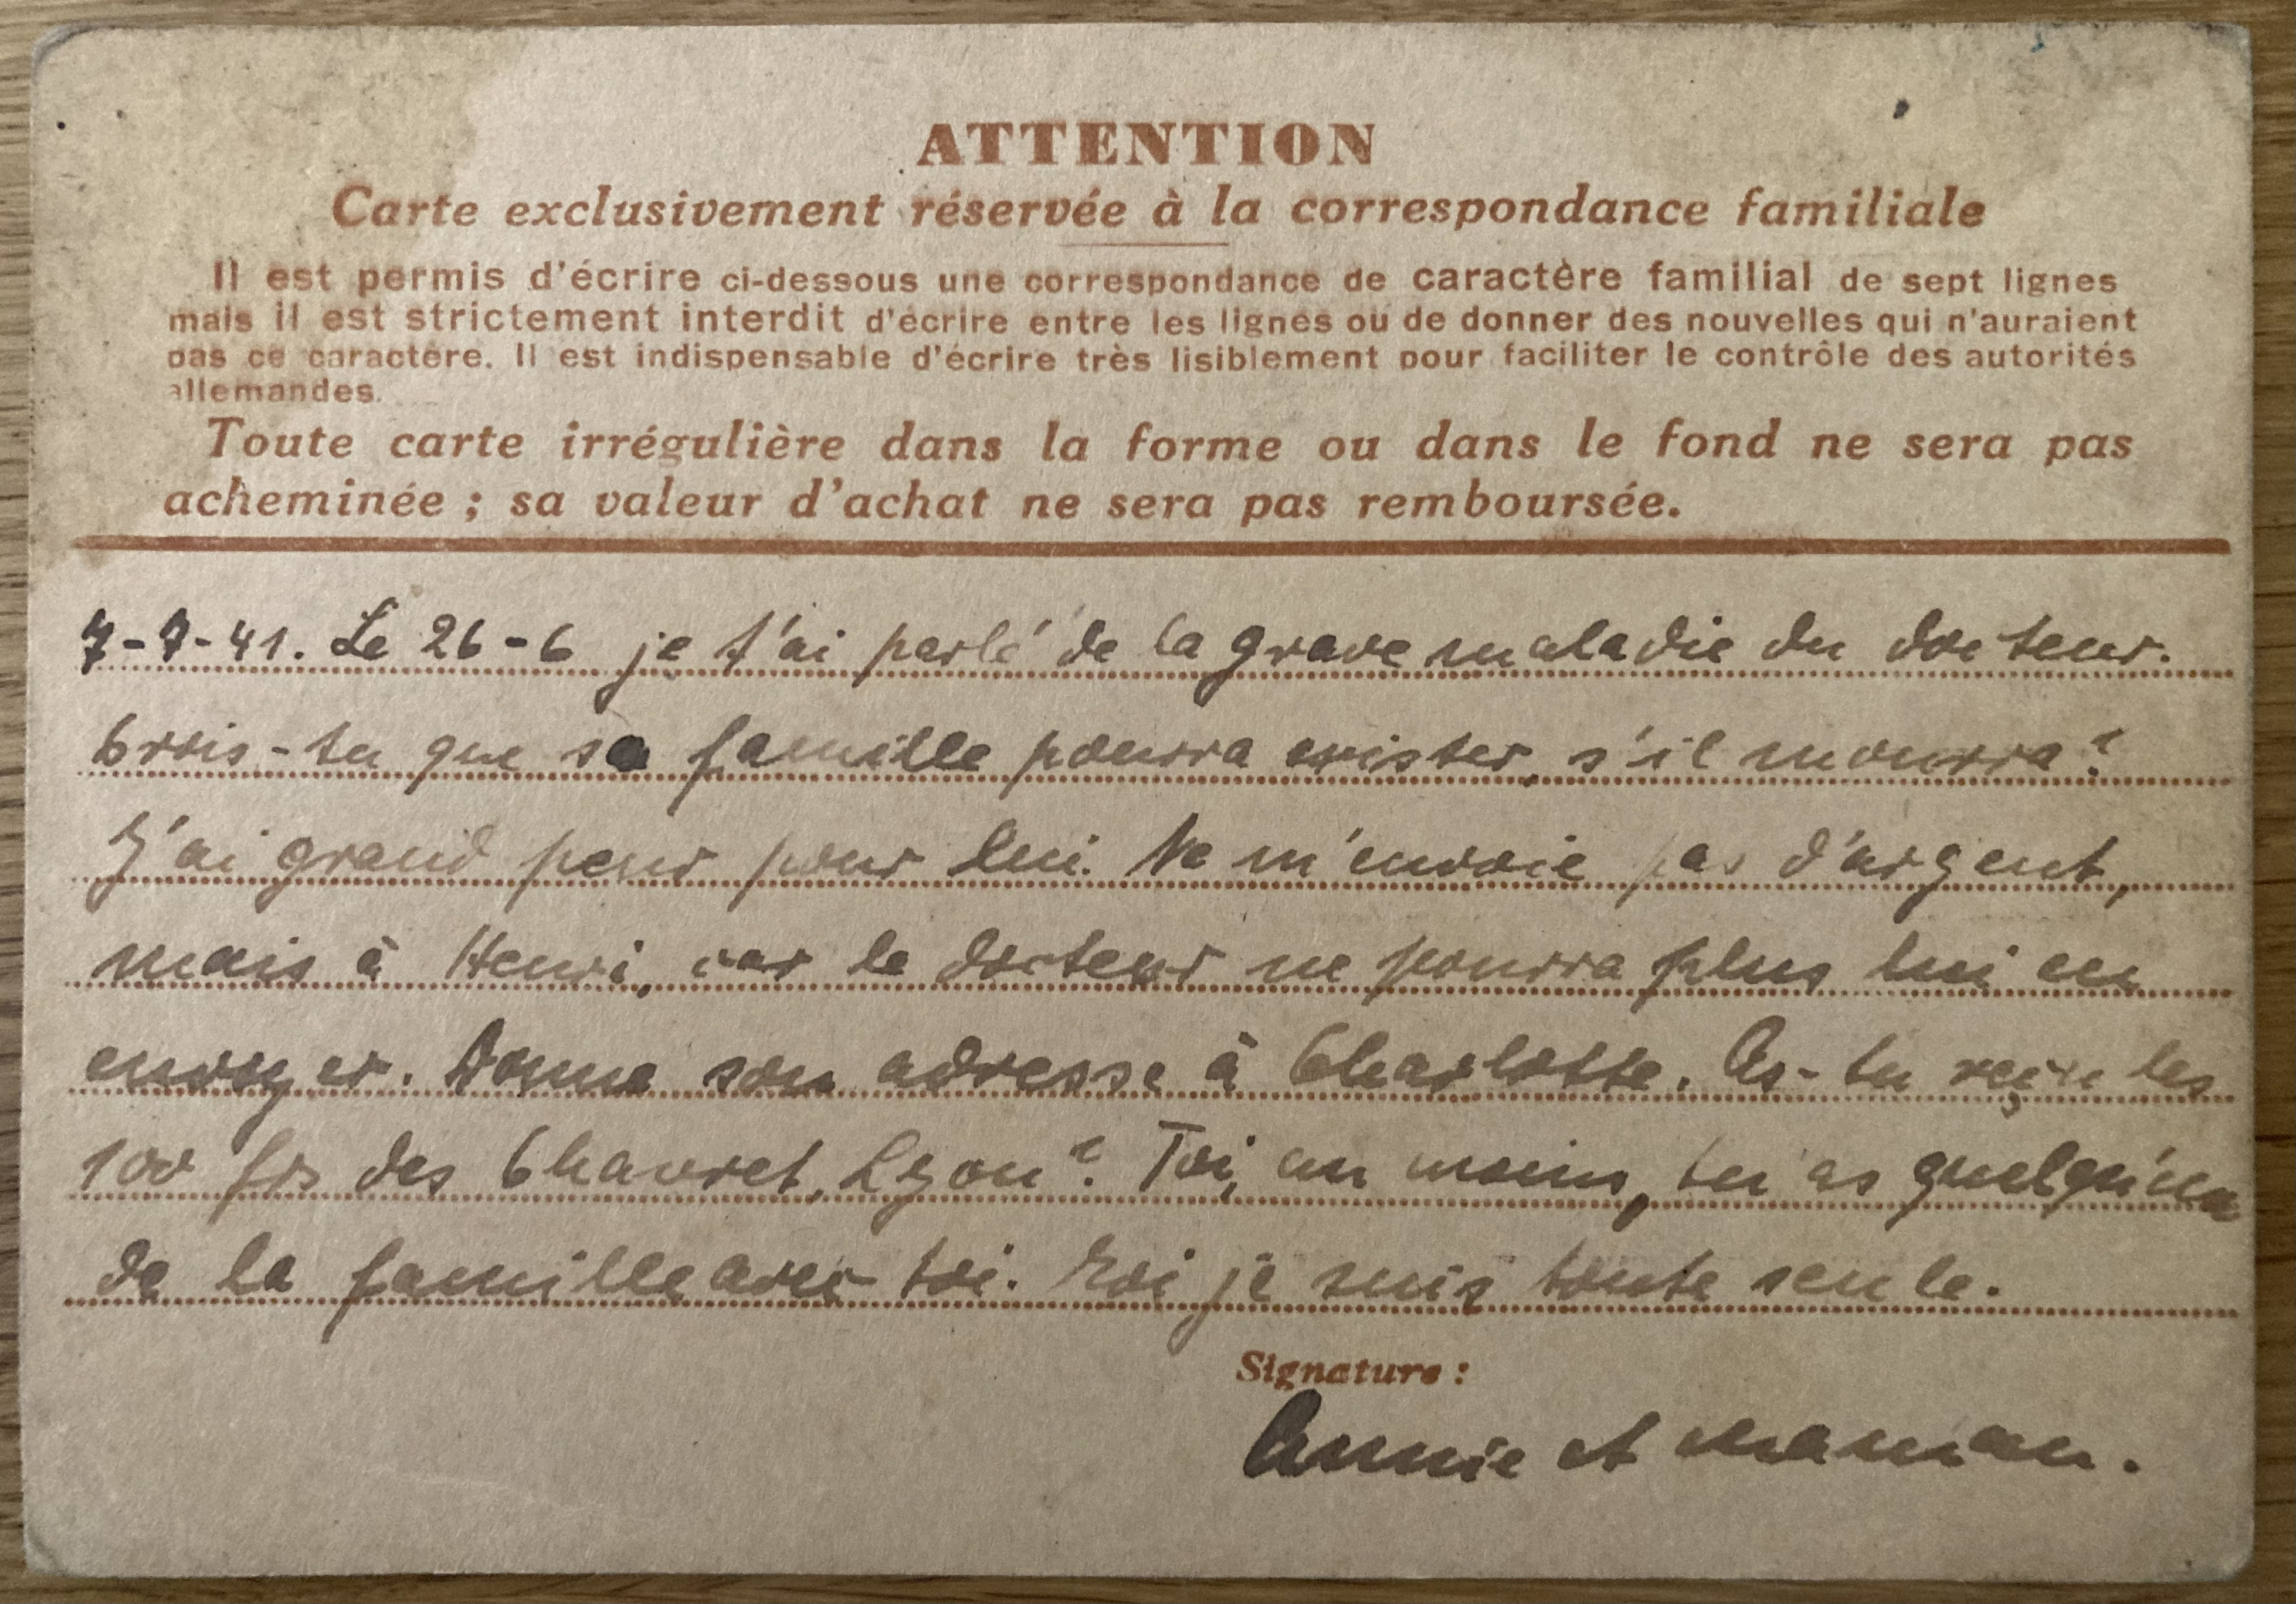 ATTENTION
Carte exclusivement réservée à la correspondance familiale
Il est permis d'écrire ci-dessous une correspondance de caractère familial de sept lignes
mais il est strictement interdit d'écrire entre les lignes ou de donner des nouvelles qui n'auraient
pas ce caractère. Il est indispensable d'écrire très lisiblement pour faciliter le contrôle des autorités
allemandes.
Toute carte irrégulière dans la forme ou dans le fond ne sera pas
acheminée ; sa valeur d'achat ne sera pas remboursée.
7-7-41. Le 26-6 je t'ai parlé de la grave maladie du docteur.
Crois-tu que sa famille pourra exister, s'il mourra?
J'ai grand peur pour lui. Ne m'envoie pas d'argent,
mais à Henri, car le docteur ne pourra plus lui en
envoyer. Donne son adresse à Charlotte. As-tu reçu les
100 frs des Chavret, Lyon? Toi, au moins, tu as quelqu'un
de la famille avec toi. Moi je suis toute seule.
Signature :
Annie et maman.